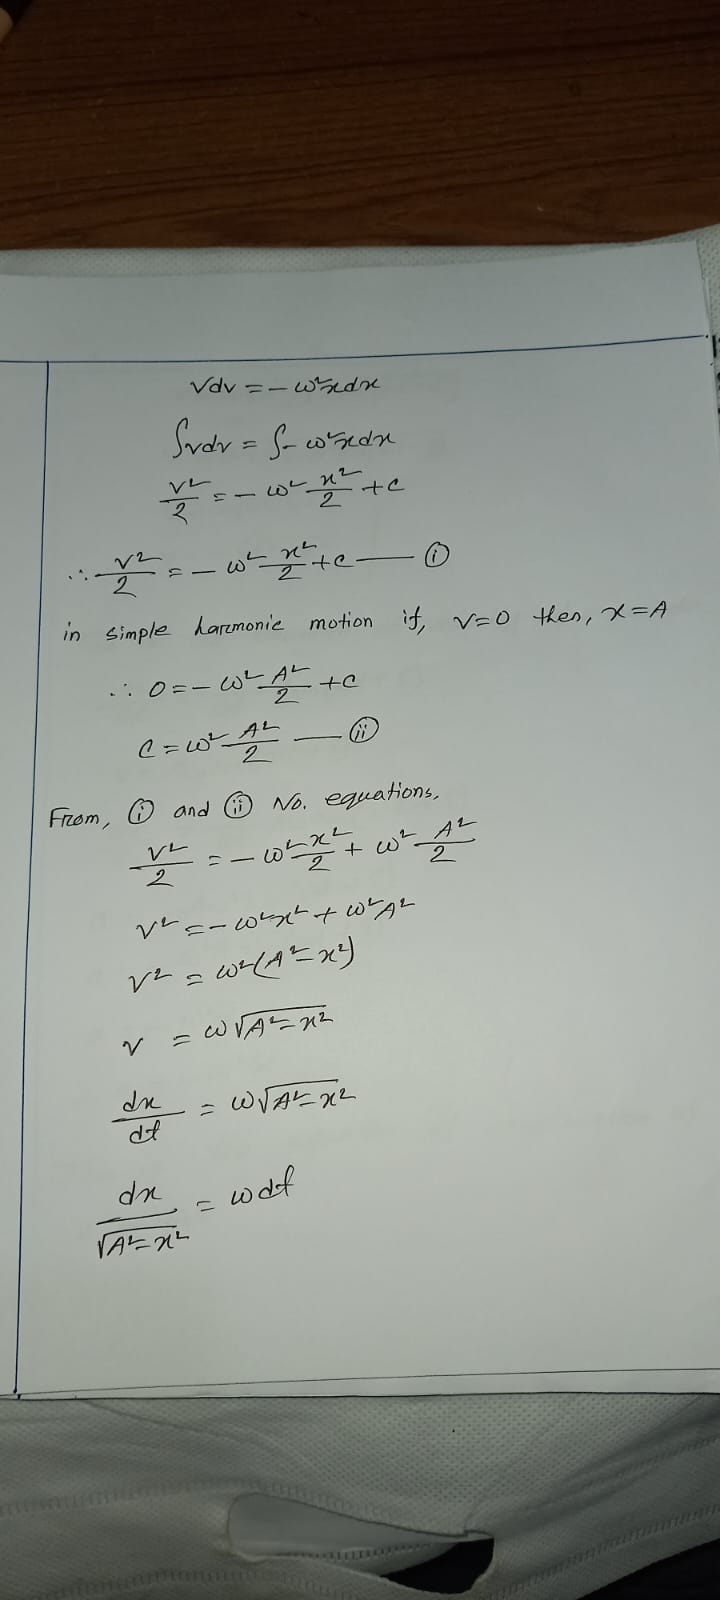 vdv = - ω²xdx
∫vdv = ∫- ω²xdx
v²/2 = - ω² x²/2 + c
∴ v²/2 = - ω² x²/2 + c — (i)
in simple harmonic motion if, v=0 then, x=A
∴ 0 = - ω² A²/2 + c
c = ω² A²/2 — (ii)
From, (i) and (ii) No. equations,
v²/2 = - ω² x²/2 + ω² A²/2
v² = - ω²x² + ω²A²
v² = ω²(A² - x²)
v = ω√(A² - x²)
dx/dt = ω√(A² - x²)
dx/√(A² - x²) = ωdt